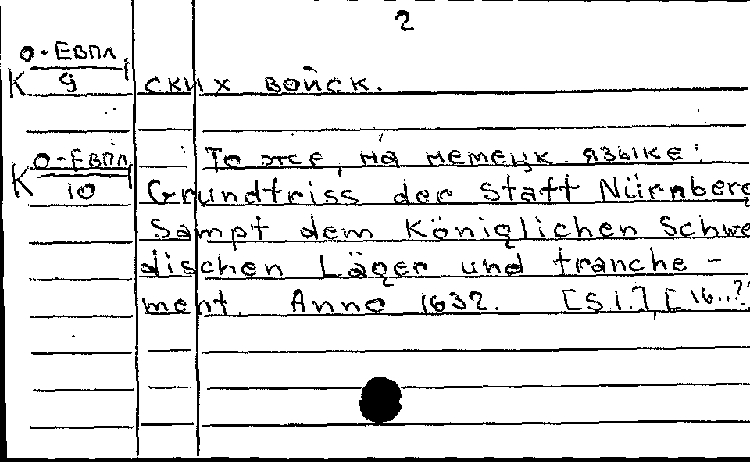 2
О-Евпл
К 9 1 ских войск.
О-Евпл То же, на немецк языке:
К 10 1 Grundtriss der Statt Nürnberg
Sampt dem Königlichen Schwe
dischen Läger und tranche-
ment. Anno 1632. [S.l.], [16..??